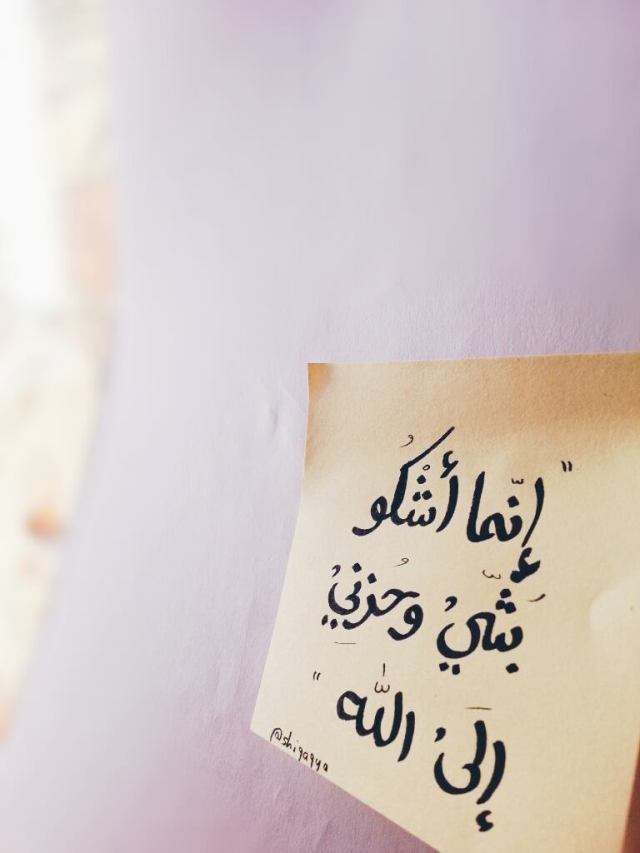 "إنّما أَشْكُو
بَثِّيْ وَحُزنِيْ
إِلَىْ اللّٰه"
@shigagya